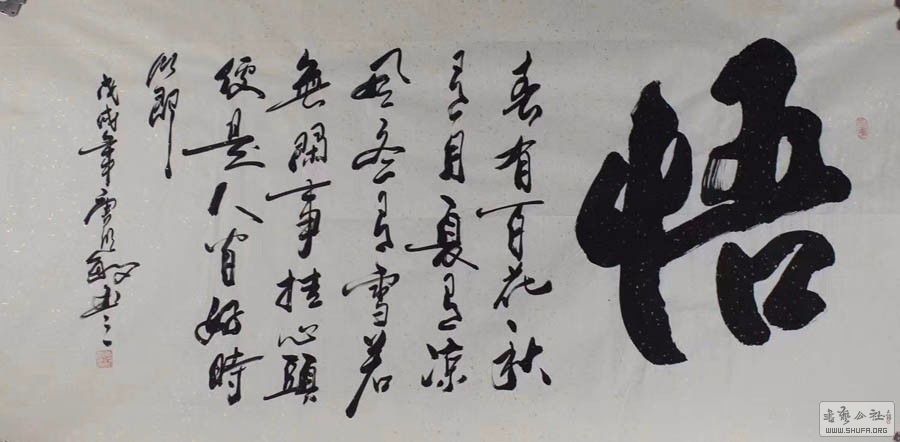 悟
春有百花秋
有月夏有涼
風冬有雪若
無閑事挂心頭
便是人间好時
節
戊戌年
書藝公社
WWW.SHUFA.ORG